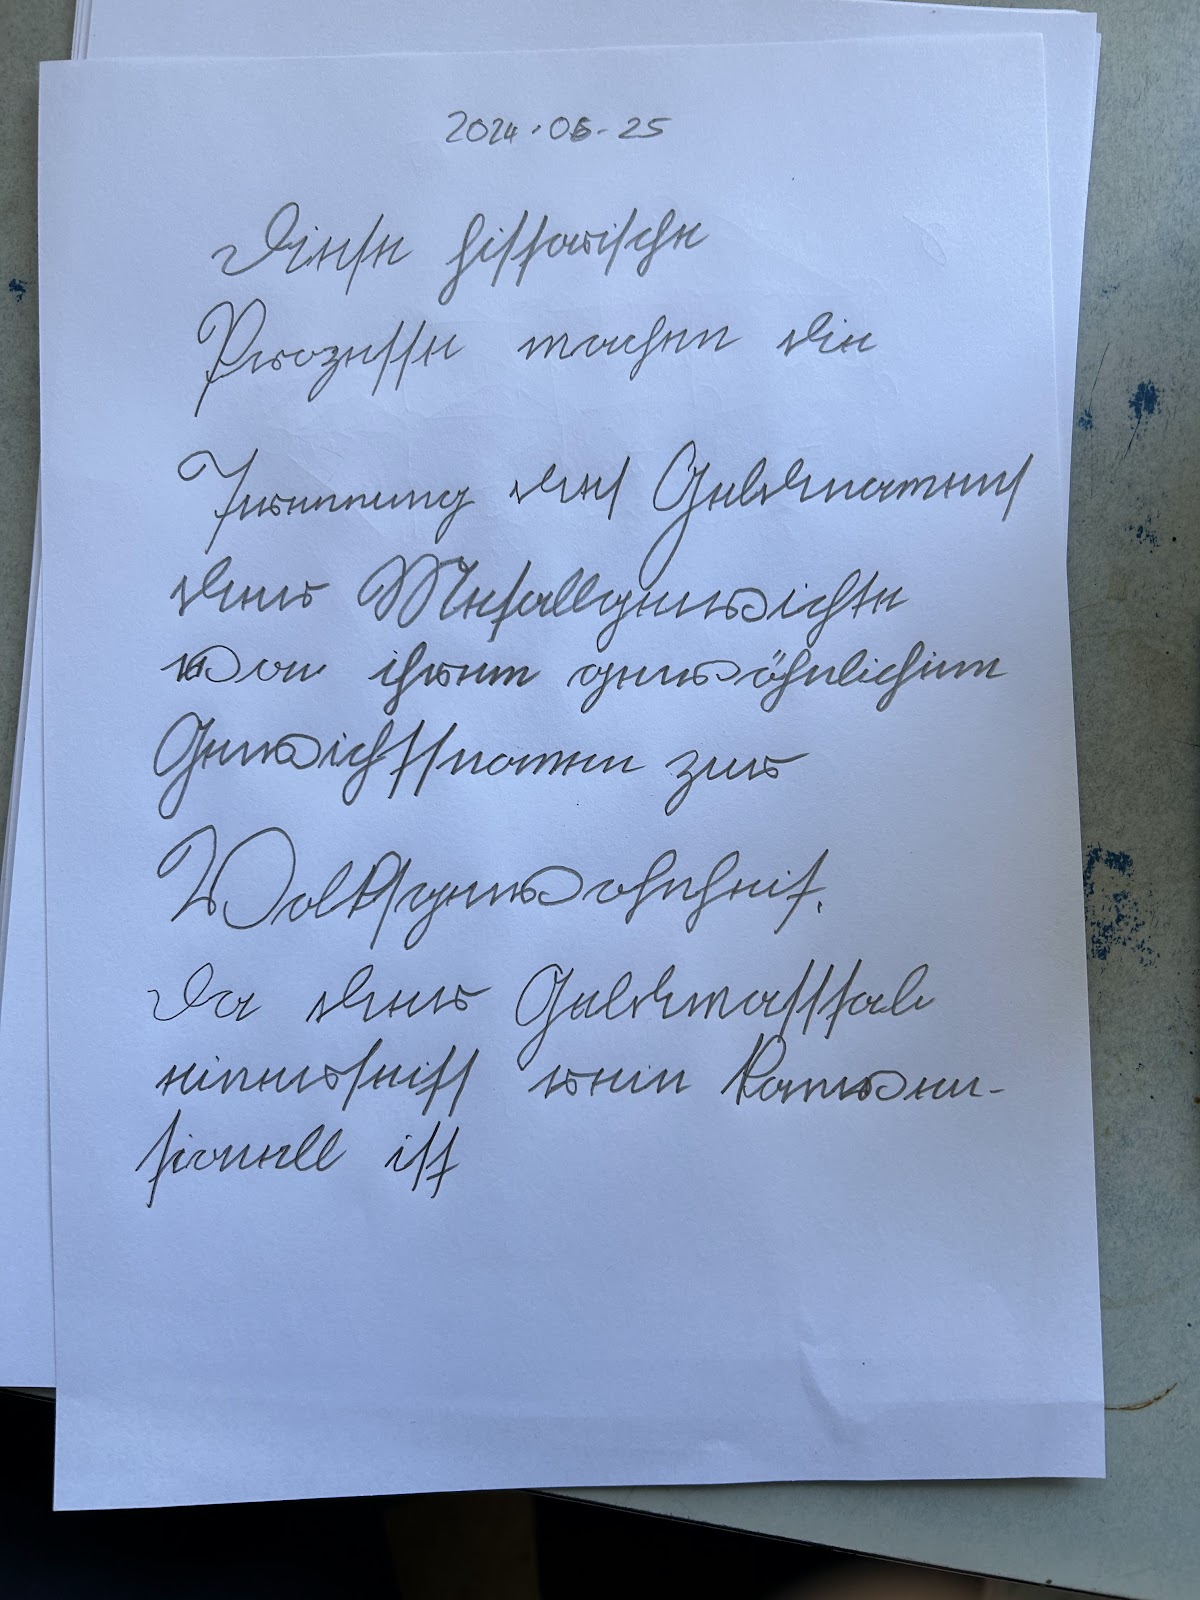 2024.06.25
Diese historische
Prozesse machen die
Trennung des Geldnamens
der Metallgewichte
von ihren gewöhnlichen
Gewichtsnamen zur
Volksgewohnheit.
Da der Geldmassstab
einerseits rein konven-
tionell ist